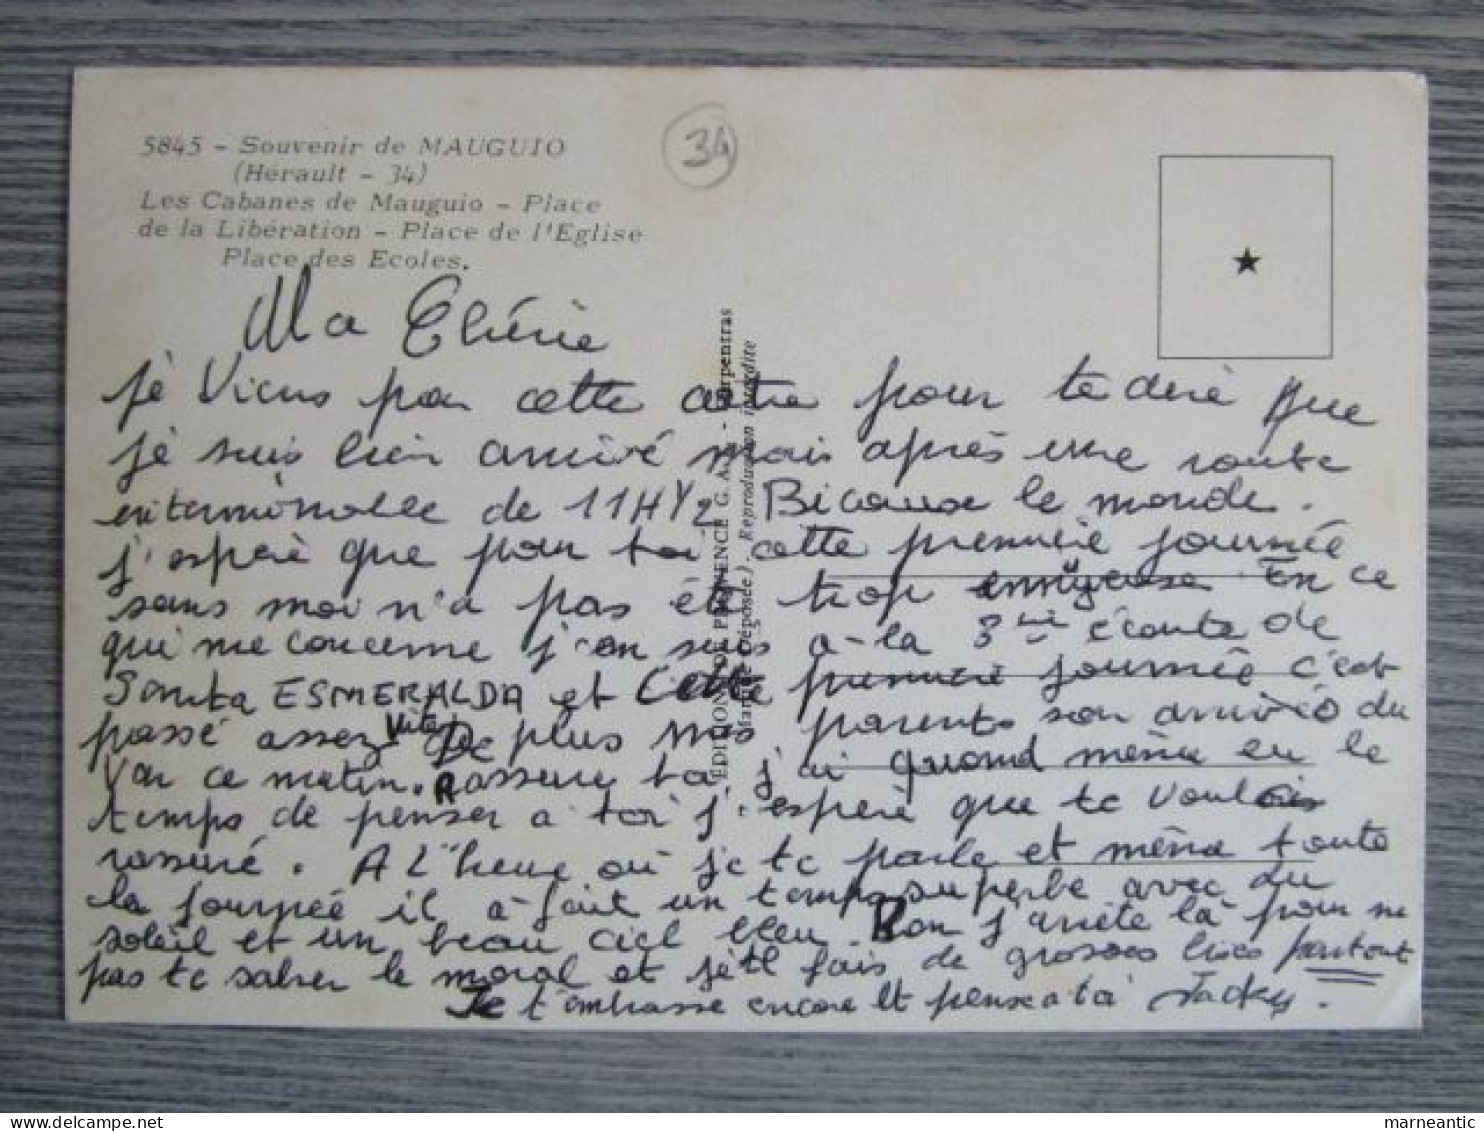 5845 - Souvenir de MAUGUIO
(Hérault - 34)
Les Cabanes de Mauguio - Place
de la Libération - Place de l'Eglise
Place des Ecoles.
34
Ma Chérie
je viens par cette carte pour te dire que
je suis bien arrivé mais après une route
interminable de 11H1/2 Bicause le monde.
j'espère que pour toi cette première journée
sans moi n'a pas été trop ennuyeuse En ce
qui me concerne j'en suis a-la 3ème écoute de
Santa ESMERALDA et Cette première journée c'est
passé assez vite De plus mes parents son arrivés du
Var ce matin. Rassure toi j'ai quand même eu le
temps de penser a toi j'espère que te voulais
rassuré. A L'heure où je te parle et même toute
la journée il a-fait un temps superbe avec du
soleil et un beau ciel bleu Bon j'arrête là pour ne
pas te saber le moral et je te fais de grosses bises partout
Je t'embrasse encore et pense a toi Jacky.
EDITIONS DE PROVENCE G. A. - Carpentras
(Marque Déposée). Reproduction interdite
marneantic